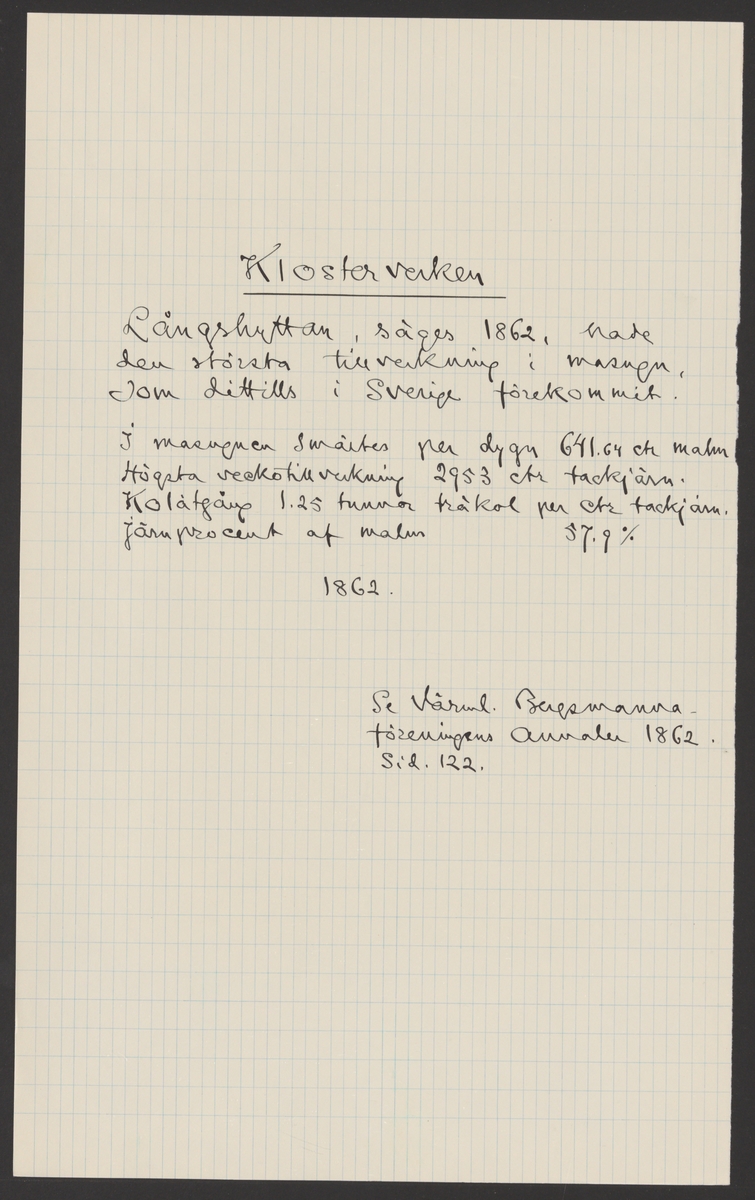 Klosterverken
Långshyttan, säges 1862, hade
den största tillverkning i masugn,
som dittills i Sverige förekommit.
I masugnen smältes per dygn 641.64 ctr malm
Högsta veckotillverkning 2953 ctr tackjärn.
Kolåtgång 1.25 tunnor träkol per ctr tackjärn.
Järnprocent af malm 57.9 %
1862.
Se Värml. Bergsmanna-
föreningens Annaler 1862.
Sid. 122.